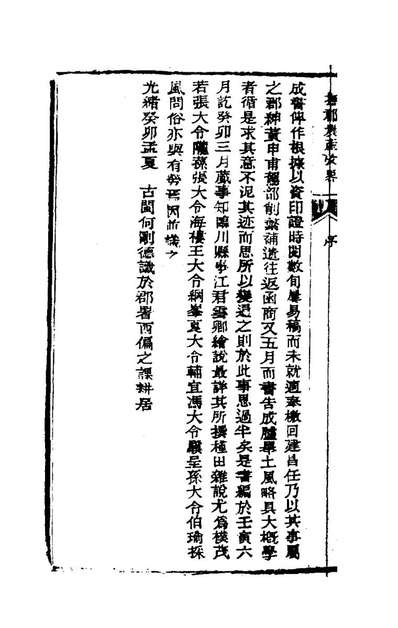 撫郡農產攷畧
序
成書俾作根據以資印證時閱數旬屢易稿而未就適奉檄回建昌任乃以其事屬
之郡紳黃申甫黼部削蘩補遺往返函商又五月而書告成臚舉土風略具大槪學
者循是求其意不泥其迹而思所以變通之則於此事思過半矣是書編於壬寅六
月訖癸卯三月蕆事知臨川縣事江君雲卿繪說最詳其所撰種田雜說尤爲樸茂
若張大令 孫張大令海樓王大令綱峯夏大令輔宜馮大令 是孫大令伯瑜採
風問俗亦與有勞焉因並識之
光緒癸卯孟夏 古閩何剛德識於郡署西偏之課耕居